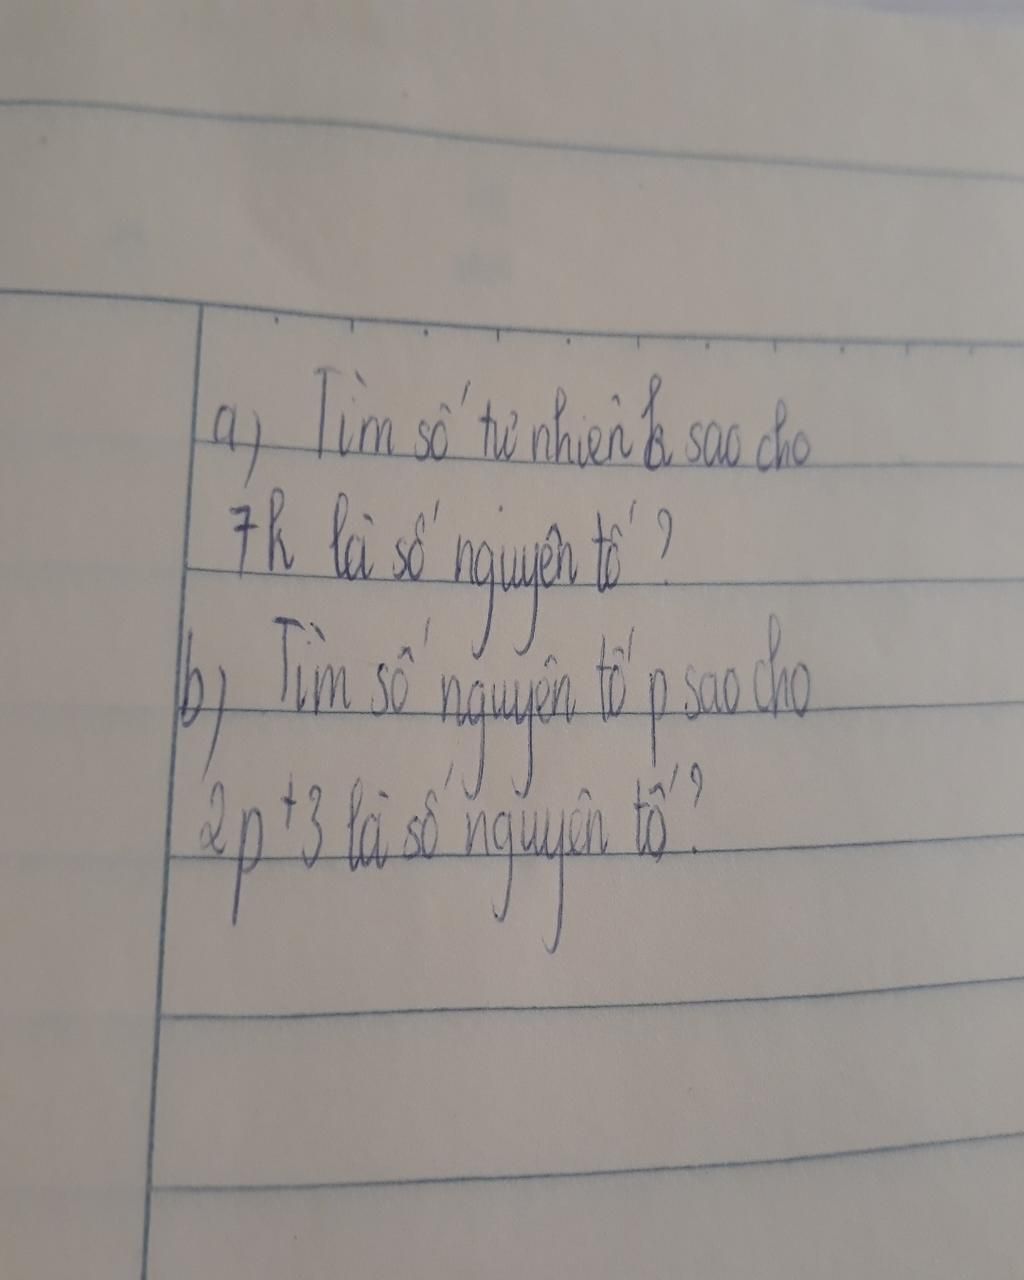 a) Tìm số tự nhiên k sao cho
7k là số nguyên tố?
b) Tìm số nguyên tố p sao cho
2p+3 là số nguyên tố?